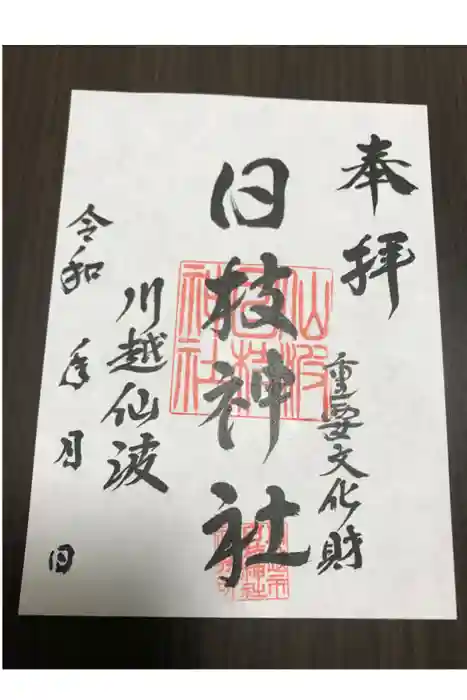 奉拝
重要文化財
日枝神社
仙波
日枝
神社
川越仙波
令和 年 月 日